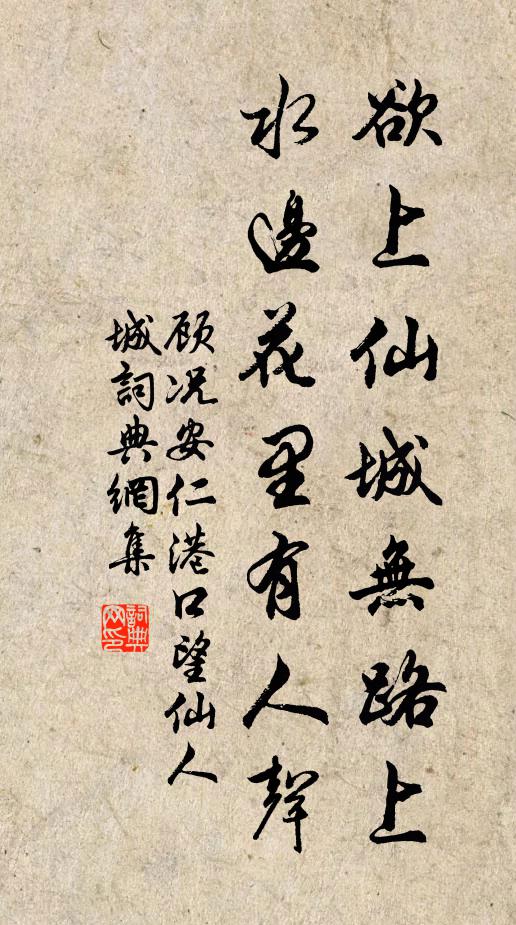 欲上仙城無路上
水邊花里有人聲
顾况安仁港口望仙人
城詞典網集
詞典
网印